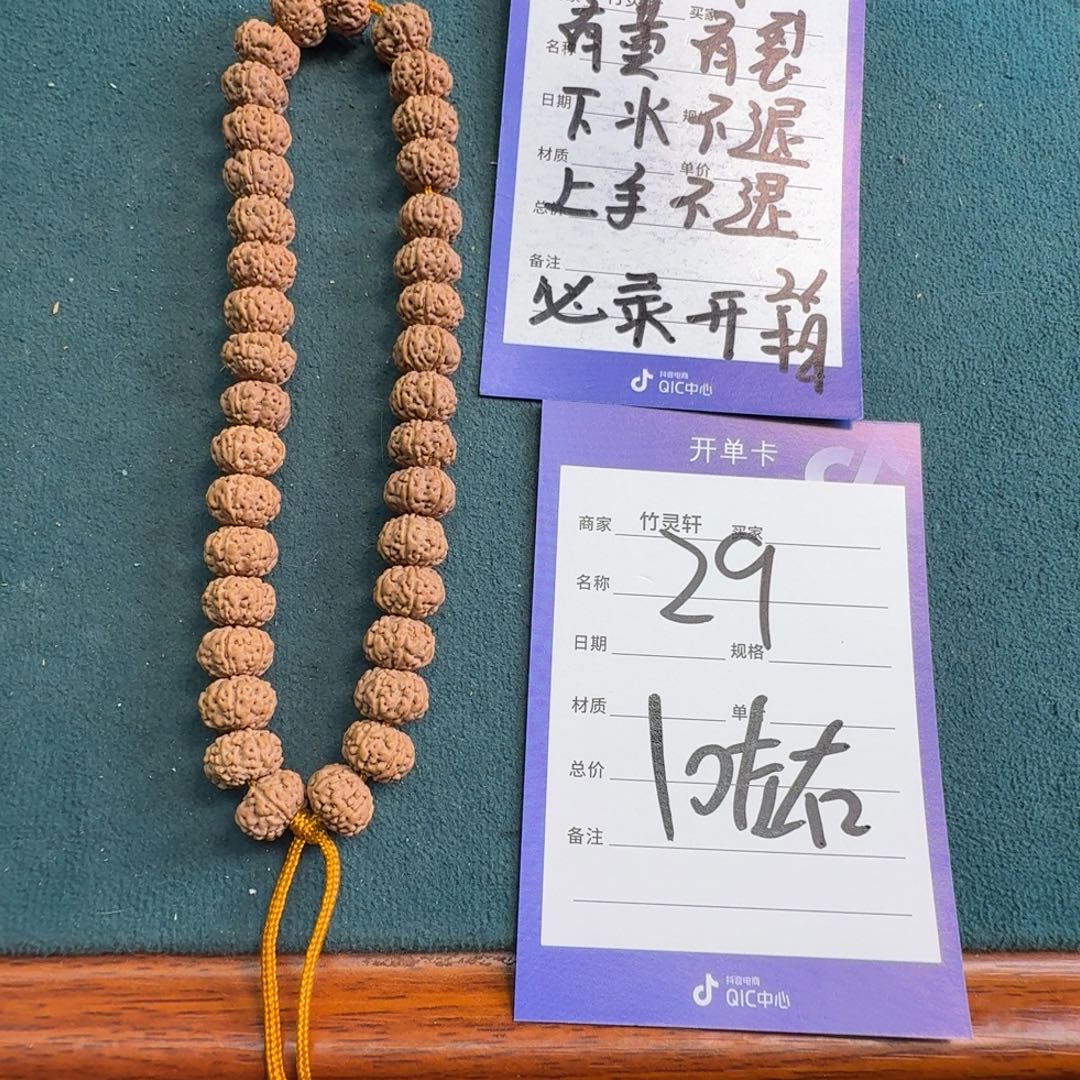 买家
名称 有蛋 有裂
日期 下水 不退
材质 单价
上手 不退
备注
必录开箱
抖音电商
QIC中心
开单卡
商家 竹灵轩 买家
29
名称
日期 规格
材质 单
总价
10左右
备注
抖音电商
QIC中心